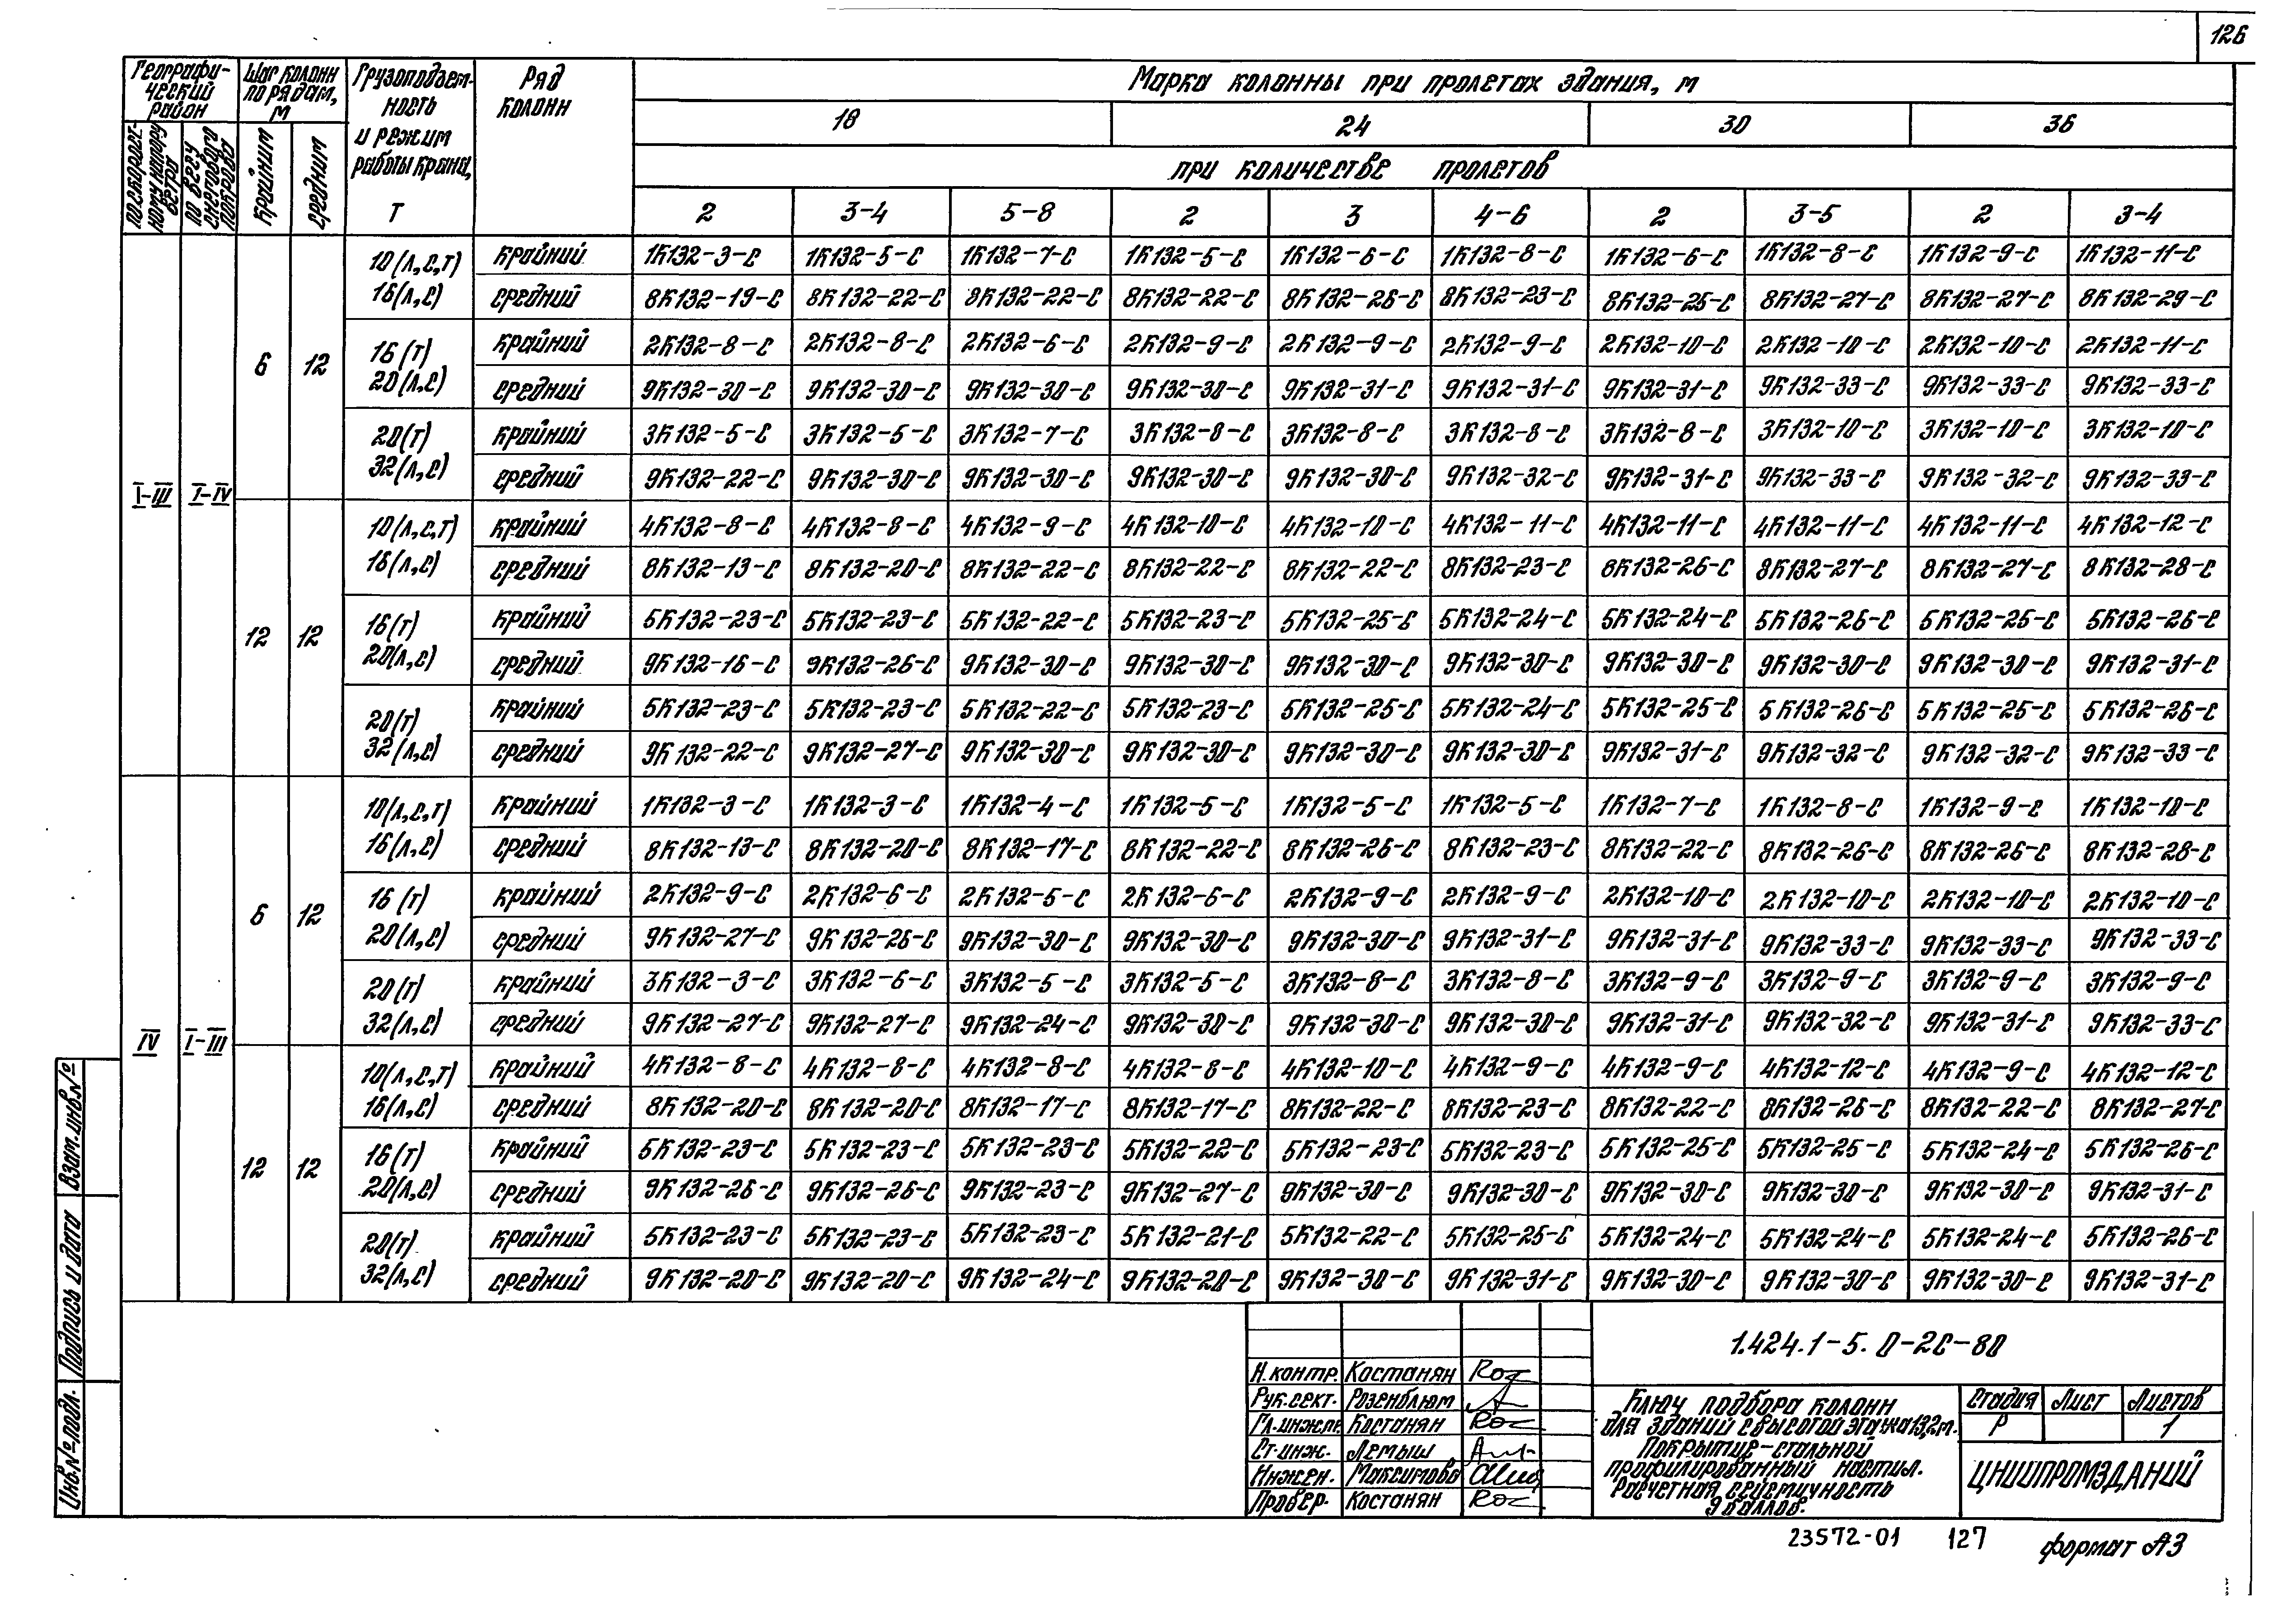 126
Географический район
Шаг колонн по рядам, м
Грузоподъемность и режим работы крана, Т
Ряд колонн
Марка колонны при пролетах здания, м
по скоростному напору ветра
по весу снегового покрова
крайним
средним
18 24 30 36
при количестве пролетов
2 3-4 5-8 2 3 4-6 2 3-5 2 3-4
I-III I-IV 6 12
10(Л,С,Т) 16(Л,С)
крайний 1К132-3-С 1К132-5-С 1К132-7-С 1К132-5-С 1К132-6-С 1К132-8-С 1К132-6-С 1К132-8-С 1К132-9-С 1К132-11-С
средний 8К132-19-С 8К132-22-С 8К132-22-С 8К132-22-С 8К132-26-С 8К132-23-С 8К132-25-С 8К132-27-С 8К132-27-С 8К132-29-С
16(Т) 20(Л,С)
крайний 2К132-8-С 2К132-8-С 2К132-6-С 2К132-9-С 2К132-9-С 2К132-9-С 2К132-10-С 2К132-10-С 2К132-10-С 2К132-11-С
средний 9К132-30-С 9К132-30-С 9К132-30-С 9К132-30-С 9К132-31-С 9К132-31-С 9К132-31-С 9К132-33-С 9К132-33-С 9К132-33-С
20(Т) 32(Л,С)
крайний 3К132-5-С 3К132-5-С 3К132-7-С 3К132-8-С 3К132-8-С 3К132-8-С 3К132-8-С 3К132-10-С 3К132-10-С 3К132-10-С
средний 9К132-22-С 9К132-30-С 9К132-30-С 9К132-30-С 9К132-30-С 9К132-32-С 9К132-31-С 9К132-33-С 9К132-32-С 9К132-33-С
12 12
10(Л,С,Т) 16(Л,С)
крайний 4К132-8-С 4К132-8-С 4К132-9-С 4К132-10-С 4К132-10-С 4К132-11-С 4К132-11-С 4К132-11-С 4К132-11-С 4К132-12-С
средний 8К132-13-С 8К132-20-С 8К132-22-С 8К132-22-С 8К132-22-С 8К132-23-С 8К132-26-С 8К132-27-С 8К132-27-С 8К132-28-С
16(Т) 20(Л,С)
крайний 5К132-23-С 5К132-23-С 5К132-22-С 5К132-23-С 5К132-25-С 5К132-24-С 5К132-24-С 5К132-26-С 5К132-25-С 5К132-26-С
средний 9К132-16-С 9К132-26-С 9К132-30-С 9К132-30-С 9К132-30-С 9К132-30-С 9К132-30-С 9К132-30-С 9К132-30-С 9К132-31-С
20(Т) 32(Л,С)
крайний 5К132-23-С 5К132-23-С 5К132-22-С 5К132-23-С 5К132-25-С 5К132-24-С 5К132-25-С 5К132-26-С 5К132-25-С 5К132-26-С
средний 9К132-22-С 9К132-27-С 9К132-30-С 9К132-30-С 9К132-30-С 9К132-30-С 9К132-31-С 9К132-32-С 9К132-32-С 9К132-33-С
IV I-III 6 12
10(Л,С,Т) 16(Л,С)
крайний 1К132-3-С 1К132-3-С 1К132-4-С 1К132-5-С 1К132-5-С 1К132-5-С 1К132-7-С 1К132-8-С 1К132-9-С 1К132-10-С
средний 8К132-13-С 8К132-20-С 8К132-17-С 8К132-22-С 8К132-26-С 8К132-23-С 8К132-22-С 8К132-26-С 8К132-26-С 8К132-28-С
16(Т) 20(Л,С)
крайний 2К132-9-С 2К132-6-С 2К132-5-С 2К132-6-С 2К132-9-С 2К132-9-С 2К132-10-С 2К132-10-С 2К132-10-С 2К132-10-С
средний 9К132-27-С 9К132-26-С 9К132-30-С 9К132-30-С 9К132-30-С 9К132-31-С 9К132-31-С 9К132-33-С 9К132-33-С 9К132-33-С
20(Т) 32(Л,С)
крайний 3К132-3-С 3К132-6-С 3К132-5-С 3К132-5-С 3К132-8-С 3К132-8-С 3К132-9-С 3К132-9-С 3К132-9-С 3К132-9-С
средний 9К132-27-С 9К132-27-С 9К132-24-С 9К132-30-С 9К132-30-С 9К132-30-С 9К132-31-С 9К132-32-С 9К132-31-С 9К132-33-С
12 12
10(Л,С,Т) 16(Л,С)
крайний 4К132-8-С 4К132-8-С 4К132-8-С 4К132-8-С 4К132-10-С 4К132-9-С 4К132-9-С 4К132-12-С 4К132-9-С 4К132-12-С
средний 8К132-20-С 8К132-20-С 8К132-17-С 8К132-17-С 8К132-22-С 8К132-23-С 8К132-22-С 8К132-26-С 8К132-22-С 8К132-27-С
16(Т) 20(Л,С)
крайний 5К132-23-С 5К132-23-С 5К132-23-С 5К132-22-С 5К132-23-С 5К132-23-С 5К132-25-С 5К132-25-С 5К132-24-С 5К132-26-С
средний 9К132-26-С 9К132-26-С 9К132-23-С 9К132-27-С 9К132-30-С 9К132-30-С 9К132-30-С 9К132-30-С 9К132-30-С 9К132-31-С
20(Т) 32(Л,С)
крайний 5К132-23-С 5К132-23-С 5К132-23-С 5К132-21-С 5К132-22-С 5К132-25-С 5К132-24-С 5К132-24-С 5К132-24-С 5К132-26-С
средний 9К132-20-С 9К132-20-С 9К132-24-С 9К132-20-С 9К132-30-С 9К132-31-С 9К132-30-С 9К132-30-С 9К132-30-С 9К132-31-С
Взам.инв.№
Подпись и дата
Инв.№ подл.
Н.контр. Костанян
Рук.сект. Розенблюм
Гл.инж.пр. Костанян
Ст.инж. Лемыш
Инжен. Максимова
Провер. Костанян
1.424.1-5. 0-2С-80
Ключ подбора колонн
для зданий с высотой этажа 13,2м.
Покрытие-стальной
профилированный настил.
Расчетная сейсмичность
9 баллов.
Стадия Лист Листов
Р 1
ЦНИИПРОМЗДАНИЙ
23572-01 127 формат А3